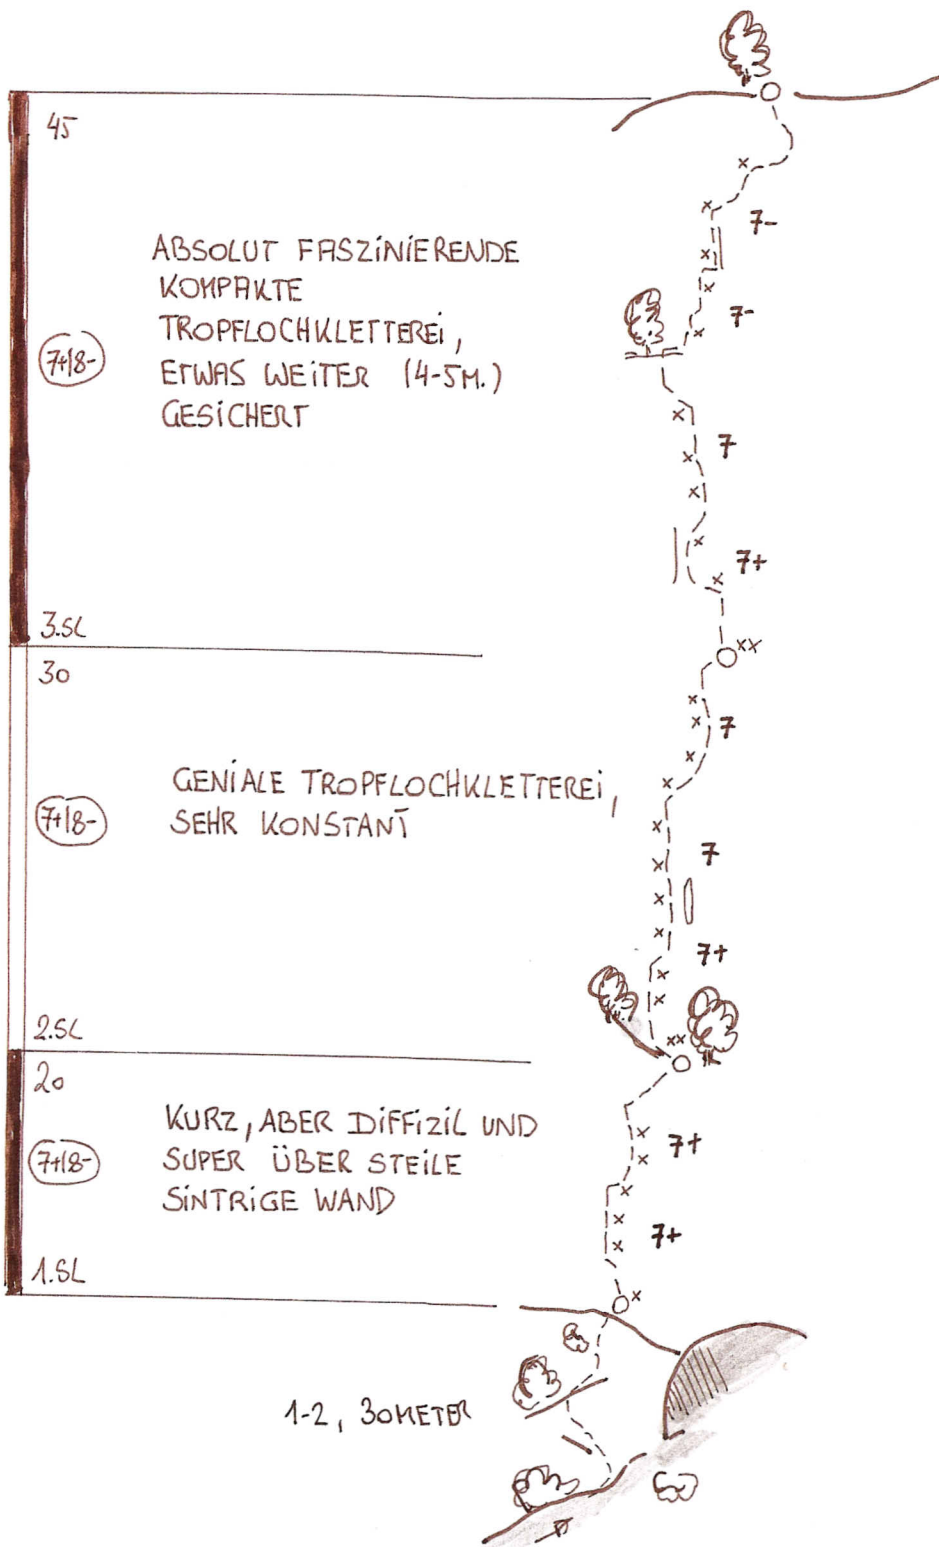 45
7-
ABSOLUT FASZINIERENDE
KOMPAKTE
TROPFLOCHKLETTEREI,
ETWAS WEITER (4-5M.)
GESICHERT
7+/8-
7-
7
7+
3.SL
30
7
GENIALE TROPFLOCHKLETTEREI,
SEHR KONSTANT
7+/8-
7
7+
2.SL
20
KURZ, ABER DIFFIZIL UND
SUPER ÜBER STEILE
SINTRIGE WAND
7+/8-
7+
7+
1.SL
1-2, 30METER